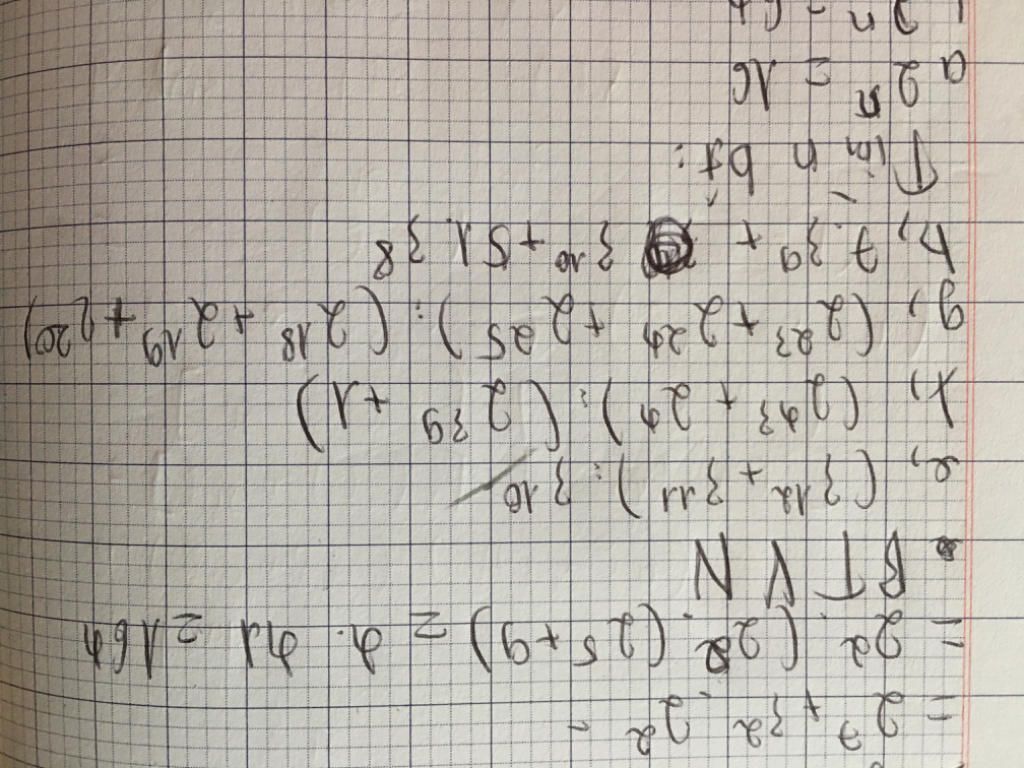 = 2⁷ + 3². 2² =
= 2². (2². (2⁵ + 9) = 4. 41 = 164
BTVN
e, (3¹² + 3¹¹) : 3¹⁰
f, (2⁴³ + 2⁴) : (2³⁹ + 1)
g, (2²³ + 2²⁴ + 2²⁵) : (2¹⁸ + 2¹⁹ + 2²⁰)
h, 7. 3⁹ + 3¹⁰ + 51. 3⁸
Tìm n bt:
a 2ⁿ = 16